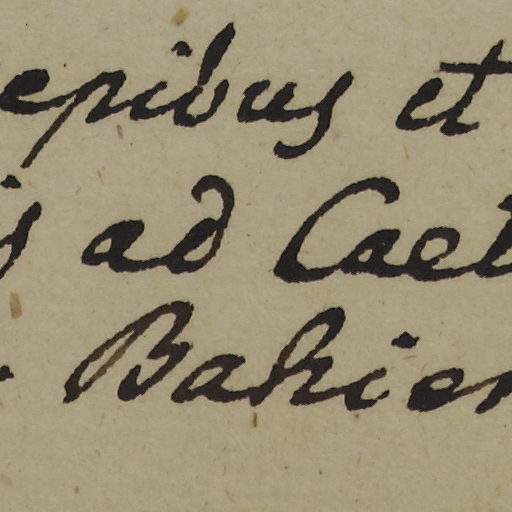 epibus et
s ad Caet
Bahien